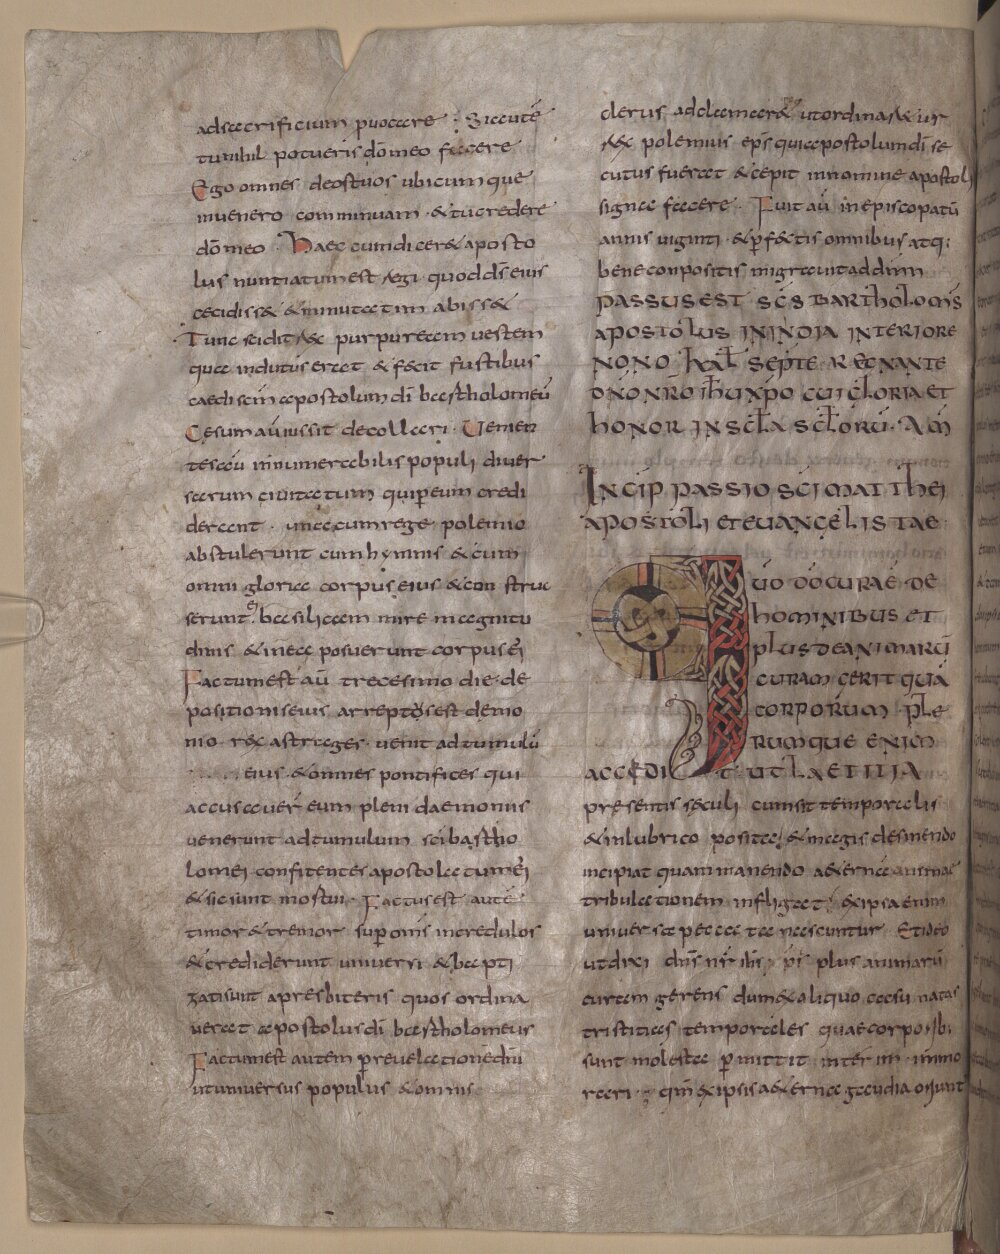 ad sacrificium provocare : Sic autē
tu nihil potueris dōmeo facere
Ego omnes deos tuos ubicumque
invenero comminuam · & tu credere
dō meo · Haec cum diceret aposto
lus nuntiatum est regi · quod d̄s eius
cecidisset & minutatim abisset
Tunc scidit rex purpuream vestem
qua indutus erat · & fecit fustibus
caedi sc̄m apostolum dī bartholomeū
Caesum aū iussit decollari · Venien
tes aū innumerabilis populi diver
sarum civitatum qui p̱ eum credi
derant · una cum rege polemio
abstulerunt cum hymnis & cum
omni gloria corpus eius & constru
xerunt ei basilicam mire magnitu
dinis & in ea posuerunt corpus ei
Factum est aū trecesimo die · de
positionis eius arreptus est demo
nio · rex astriges · venit ad tumulū
eius & omnes pontifices qui
accusaver̄ eum pleni daemoniis
venerunt ad tumulum sc̄i bartho
lomei · confitentes apostolatum ei
& sic sunt mortui · Factus est autē
timor & tremor sup̱ om̄s incredulos
& crediderunt universi & bapti
zati sunt a presbiteris quos ordina
verat apostolus dī bartholomeus
Factum est autem p̱ revelationē dn̄i
ut universus populus & omnis
clerus adclamaret ut ordinaretur
rex polemius · ep̄s qui apostolum dī se
cutus fuerat & cepit in nomine apostoli
signa facere · Fuit aū in episcopatū
annis viginti · & p̱fectis omnibus atq;
bene conpositis migravit ad dn̄m
PASSUS EST SC̄S BARTHOLOMS
APOSTOLUS IN INDIA INTERIORE
NONO KAL SEPTE · REGNANTE
DN̄O NRO IH̄U XP̄O CUI GLORIA ET
HONOR IN SCLA SCLORŪ · AM̄
INCIP PASSIO SC̄I MATTHEI
APOSTOLI ET EUANGELISTAE
QUO D̄O CURAE DE
HOMINIBUS ET
PLUS DE ANIMARŪ
CURAM GERIT QUĀ
CORPORUM · PLE
RUMQUE ENIM
ACCEDIT · UT LAETITIA
presentis sęculi cum sit temporalis
& in lubrico posita; & magis desinendo
incipiat quam manendo aeternae animae
tribulationem infligat; & ipsa enim
universa peccata nascuntur Et ideo
ut dixi dn̄s nr̄ ih̄s xp̄s plus animarū
curam gerens dum & aliquo casu natas
tristitias temporales quae corporib;
sunt molesta p̱mittit interim inmo
rari; qm̄ & ipsis aeterna gaudia oriunt